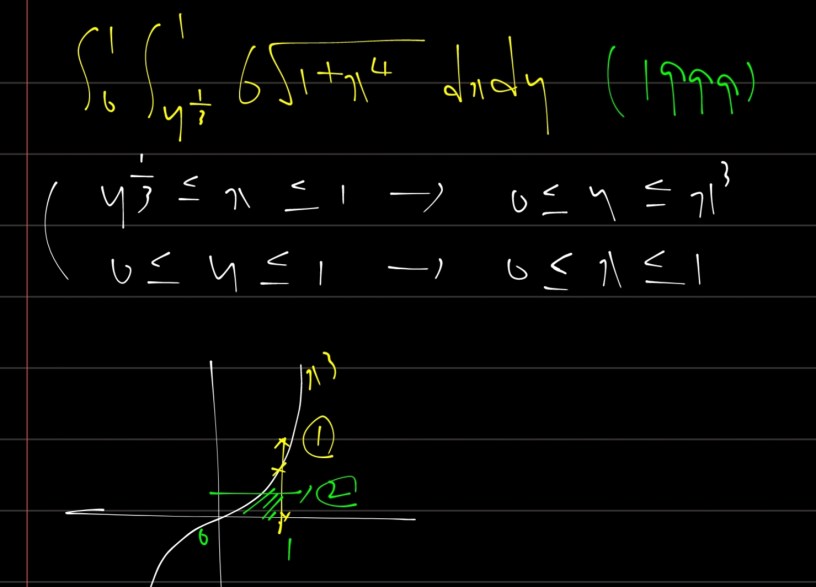 ∫₀¹ ∫_{y^{1/3}}^{1} 6√(1+x⁴) dxdy (1999)
y^{1/3} ≤ x ≤ 1 → 0 ≤ y ≤ x³
0 ≤ y ≤ 1 → 0 ≤ x ≤ 1
x³
①
②
0 1